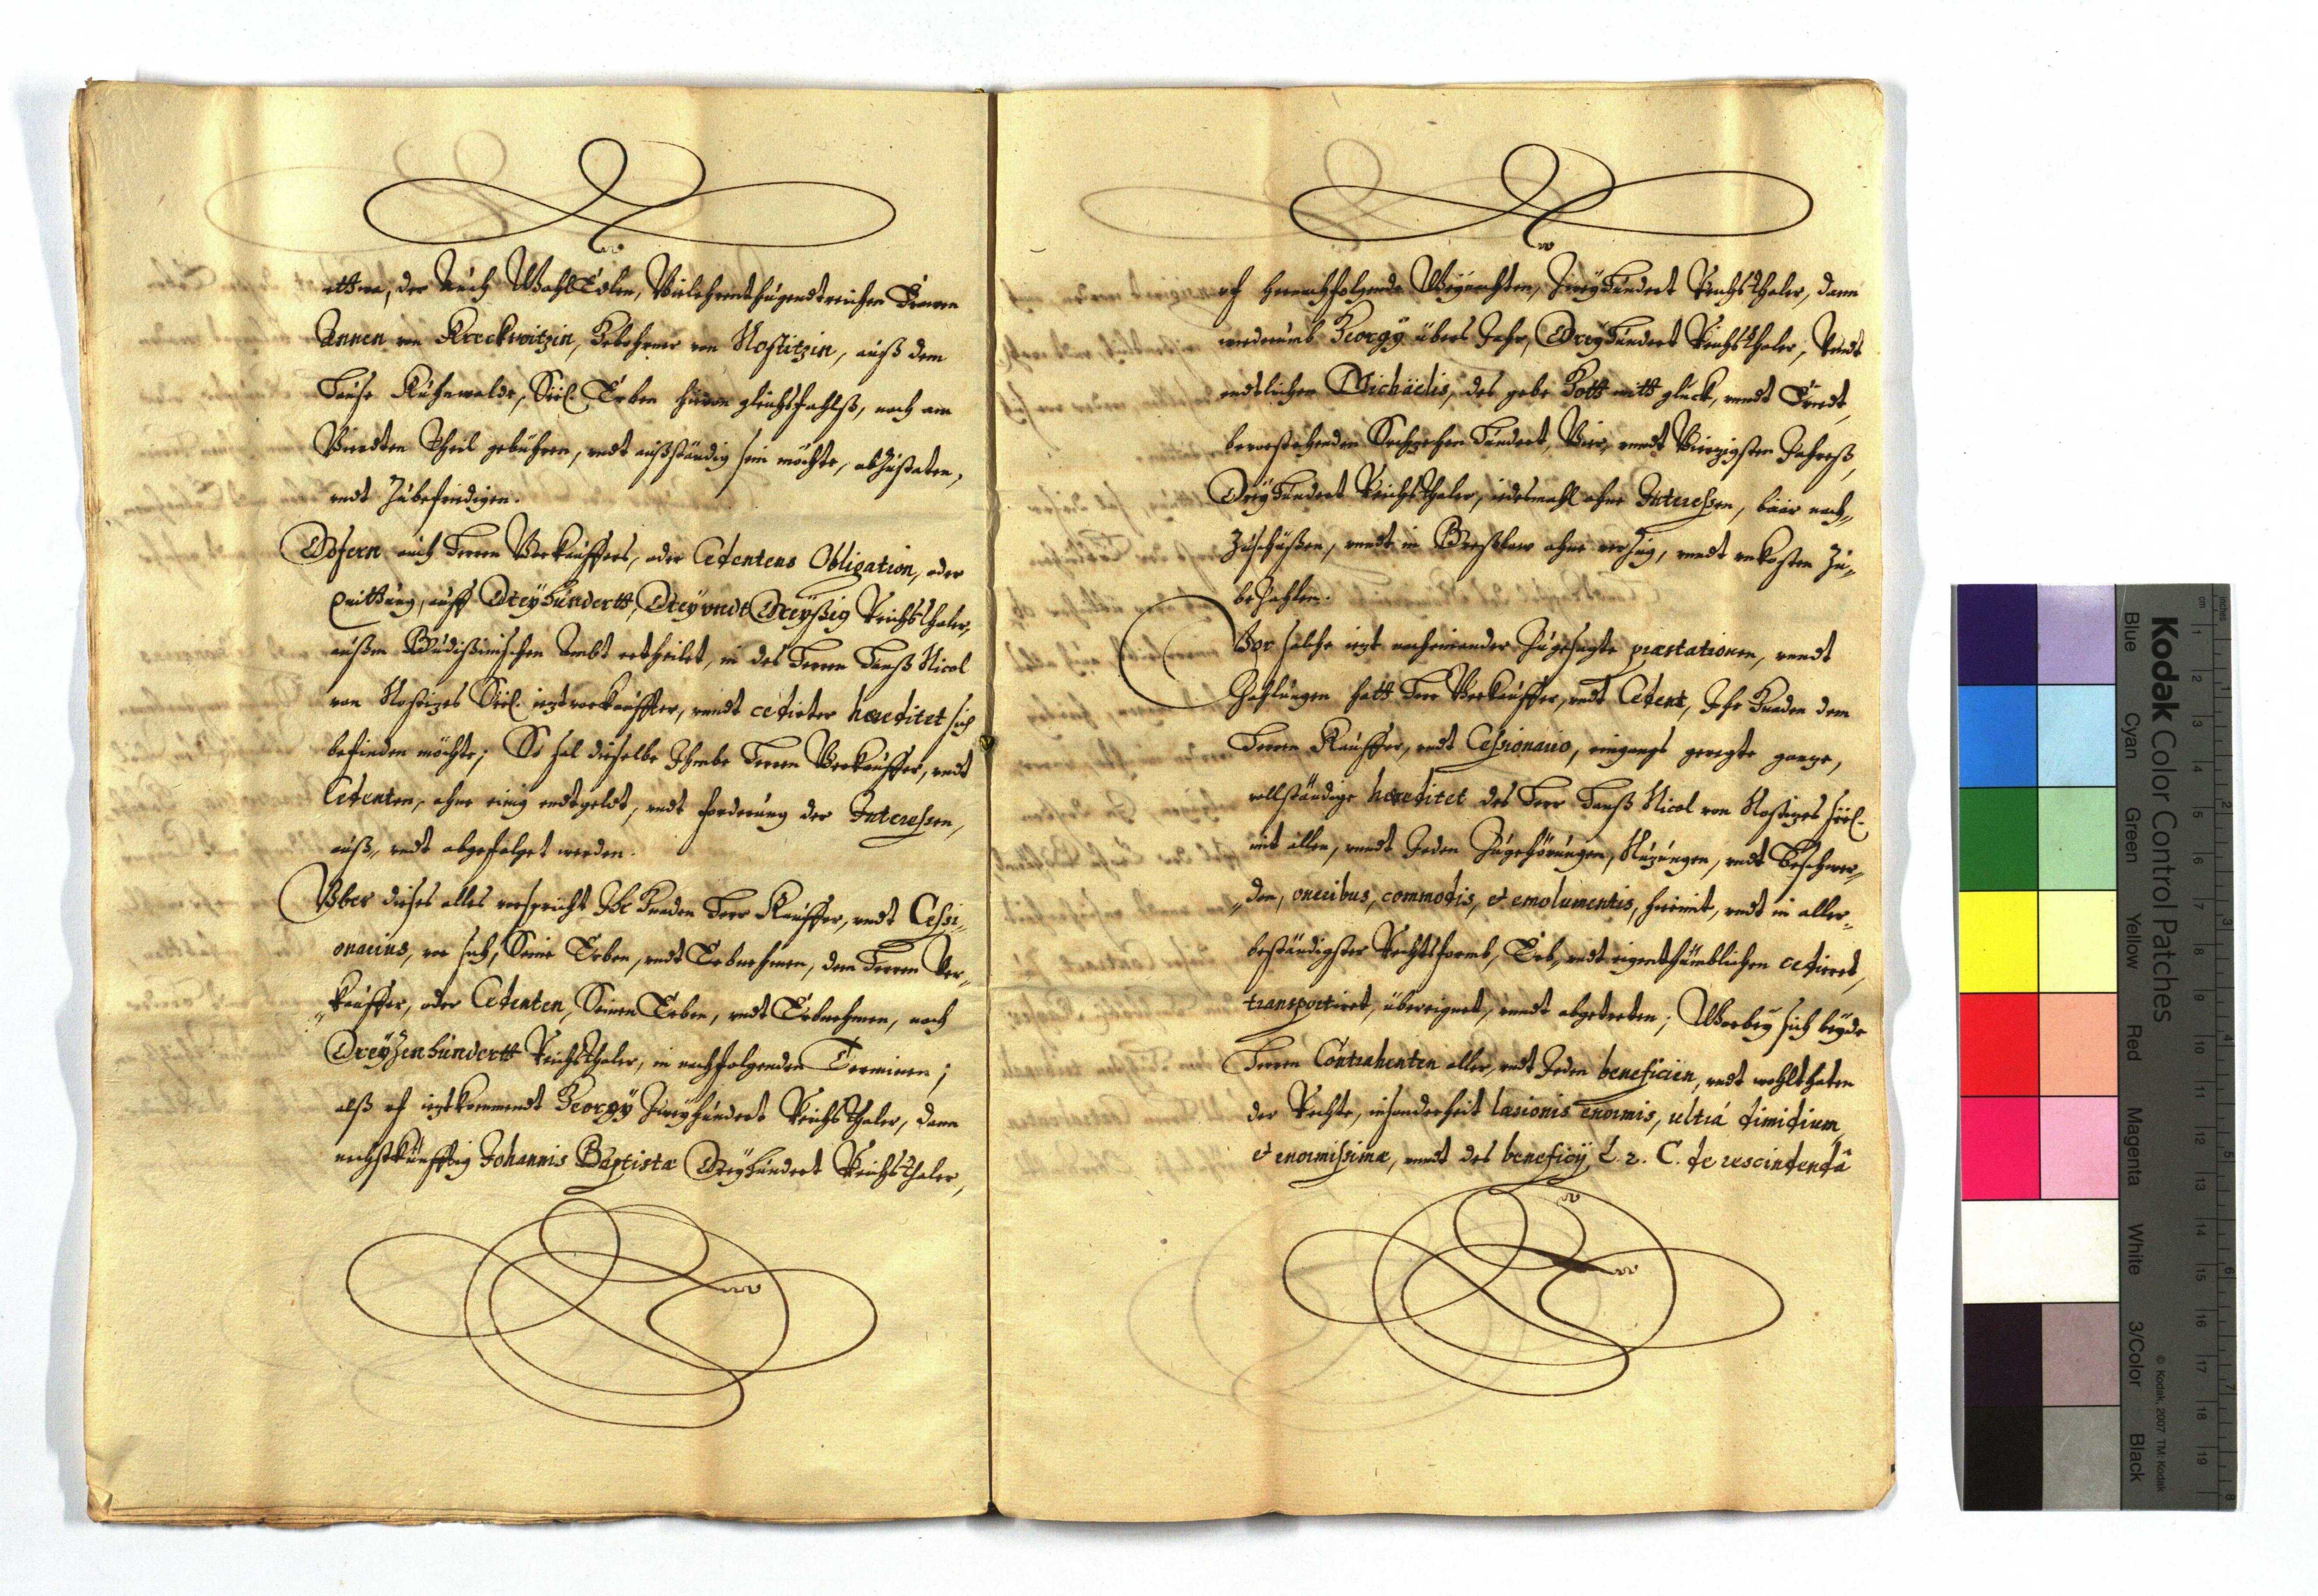 ettwa, der Auch WohlEdlen, Vielehrenthugendtreichen Frauen
Annen von Kreckwitzin, Gebohrner von Nostitzin, auß dem
Hause Kuhnewalde, Seel. Erben hievon gleichsfahlß, noch am
Vierdten Theil gebühren, undt außständig sein möchte, abzustaten,
undt Zubefriedigen.
Dofern auch Herren Verkauffers, oder Cedentens Obligation, oder
Quittung, auff Dreyhundertt, Drey vndt Dreyßig Reichsthaler,
außm Budißinischen Ambt ertheilet, in des Herren Hanß Nicol
von Nostizes Seel. iezt verkauffter, unndt cedirter hæreditet sich
befinden möchte; So sol dieselbe Ihme Herren Verkauffer, undt
Cedenten, ohne einig endtgeldt, undt forderung der Interessen,
auß, undt abgefolget werden.
Vber dieses alles verspricht Ihr Gnaden Herr Kauffer, undt Cessi„
onarius, vor sich, Seine Erben, undt Erbnehmen, dem Herren Ver„
„kauffer, oder Cedenten, Seinen Erben, undt Erbnehmen, noch
Dreyzenhundertt Reichsthaler, in nachfolgenden Terminen;
alß uf ieztkommendt Georgy Zweyhundert Reichsthaler, dann
nechstkünfftig Johannis Baptistæ Dreyhundert Reichsthaler,
uf hernachfolgende Weynachten, Zweyhundert Reichsthaler, dann
wiederumb Georgy übers Jahr, Dreyhundert Reichsthaler, Undt
endtlichen Michaëlis, des gebe Gott mitt glück, unndt Friedt,
bevorstehenden Sechzehen Hundert, Vier, unndt Vierzigsten Jahreß,
Dreyhundert Reichsthaler, iedesmahl ohne Interessen, baar nach„
Zuschüßen, unndt in Breßlaw ohne verzug, unndt unkosten Zu„
bezahlen.
Vor solche iezt nacheinander Zugesagte præstationen, unndt
Zahlungen hatt Herr Verkauffer, undt Cedent, Ihr Gnaden dem
Herren Kauffer, undt Cessionario, eingangs geregte ganze,
vollständige hæreditet des Herr Hanß Nicol von Nostizes seel.
mit allen, unndt Jeden Zugehörungen, Nuzungen, undt Beschwer„
„den, oneribus, commodis, et emolumentis, hiermit, undt in aller„
beständigster Rechtsformb, Erb, undt eigenthümblichen cediret,
transportiret, übereignet, unndt abgetreten; Worbey sich beyde
Herren Contrahenten aller, undt Jeden beneficien, undt wohlthaten
der Rechte, insonderheit læsionis enormis, ultrá dimidium,
et enormissimæ, unndt des beneficij L. 2. C. de rescindendâ
Kodak Color Control Patches
Blue Cyan Green Yellow Red Magenta White 3/Color Black
© Kodak, 2007 TM: Kodak
inches 1 2 3 4 5 6 7 8
cm 1 2 3 4 5 6 7 8 9 10 11 12 13 14 15 16 17 18 19